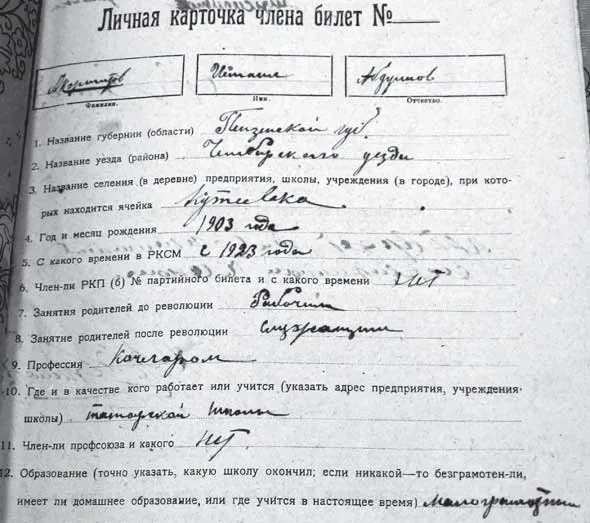 Личная карточка члена билет №
Исмаил Абдулов
Фамилия. Имя. Отчество.
1. Название губернии (области) Пензенской губ.
2. Название уезда (района) Чембарского уезда
3. Название селения (в деревне) предприятия, школы, учреждения (в городе), при кото-
рых находится ячейка Кутеевка
4. Год и месяц рождения 1903 года
5. С какого времени в РКСМ с 1923 года
6. Член-ли РКП (б) № партийного билета и с какого времени нет
7. Занятия родителей до революции Рабочим
8. Занятие родителей после революции служащим
9. Профессия Кочегаром
10. Где и в качестве кого работает или учится (указать адрес предприятия, учреждения-
школы) татарской школы
11. Член-ли профсоюза и какого нет
12. Образование (точно указать, какую школу окончил; если никакой—то безграмотен-ли,
имеет ли домашнее образование, или где учится в настоящее время) малограмотный